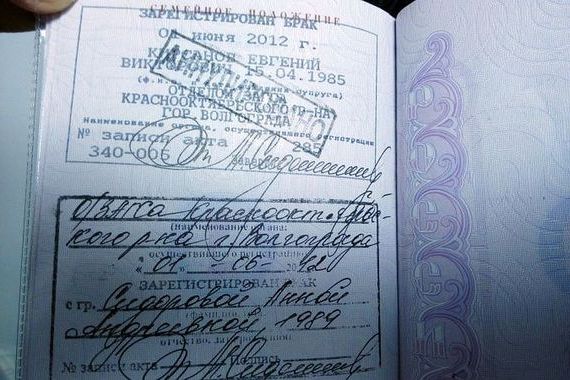 СЕМЕЙНОЕ ПОЛОЖЕНИЕ
ЗАРЕГИСТРИРОВАН БРАК
01 ИЮНЯ 2012 г.
ЕВГЕНИЙ
15.04.1985
ОТДЕЛОМ ЗАГС
КРАСНООКТЯБРЬСКОГО Р-НА
ГОР. ВОЛГОГРАДА
Наименование органа, осуществившего регистрацию
№ записи акта 285
340-006
ОЗАГСа Краснооктябрьс-
кого р-на г. Волгограда
(наименование органа,
осуществившего регистрацию)
"01" 06 2012
ЗАРЕГИСТРИРОВАН БРАК
с гр. Сидоровой Анной
Андреевной, 1989
№ записи акта Подпись